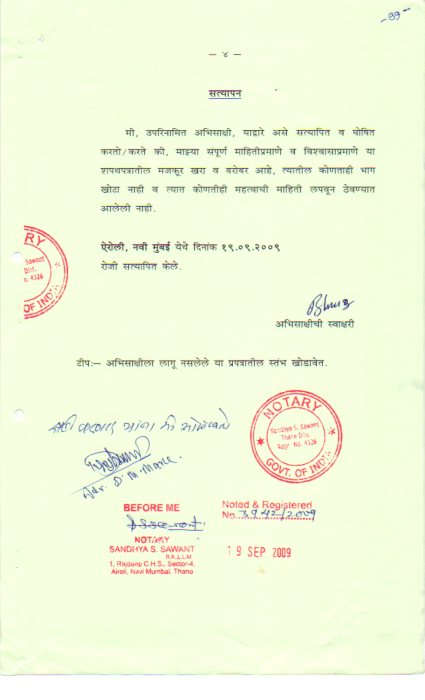 — ४ —
सत्यापन
मी, उपरिनामित अभिसाक्षी, याद्वारे असे सत्यापित व घोषित
करतो/करते की, माझ्या संपूर्ण माहितीप्रमाणे व विश्वासाप्रमाणे या
शपथपत्रातील मजकूर खरा व बरोबर आहे, त्यातील कोणताही भाग
खोटा नाही व त्यात कोणतीही महत्वाची माहिती लपवून ठेवण्यात
आलेली नाही.
ऐरोली, नवी मुंबई येथे दिनांक १९.०९.२००९
रोजी सत्यापित केले.
RY
Sawant
Dist.
o. 4326
OF INDIA
अभिसाक्षीची स्वाक्षरी
टीप:— अभिसाक्षीला लागू नसलेले या प्रपत्रातील स्तंभ खोडावेत.
NOTARY
Sandhya S. Sawant
Thane Dist.
Regd. No. 4326
GOVT. OF INDIA
Adv. D. M.
BEFORE ME
NOTARY
SANDHYA S. SAWANT
B.A.,L.L.M
1, Rajdeep C.H.S., Sector-4,
Airoli, Navi Mumbai, Thane
Noted & Registered
No. 3942/2009
19 SEP 2009